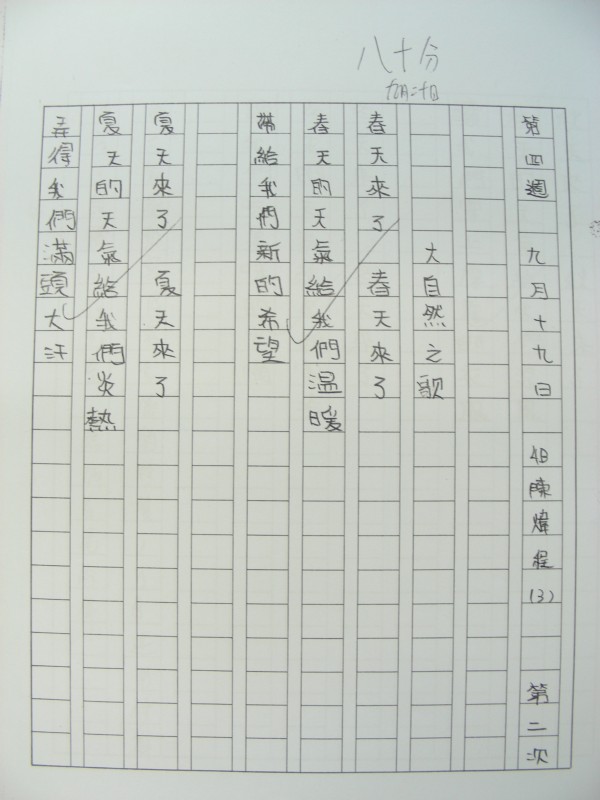 八十分
九月二十日
第四週 九月十九日 4B 陳煒程 (3) 第二次
大自然之歌
春天來了 春天來了
春天的天氣給我們溫暖
帶給我們新的希望
夏天來了 夏天來了
夏天的天氣給我們炎熱
弄得我們滿頭大汗